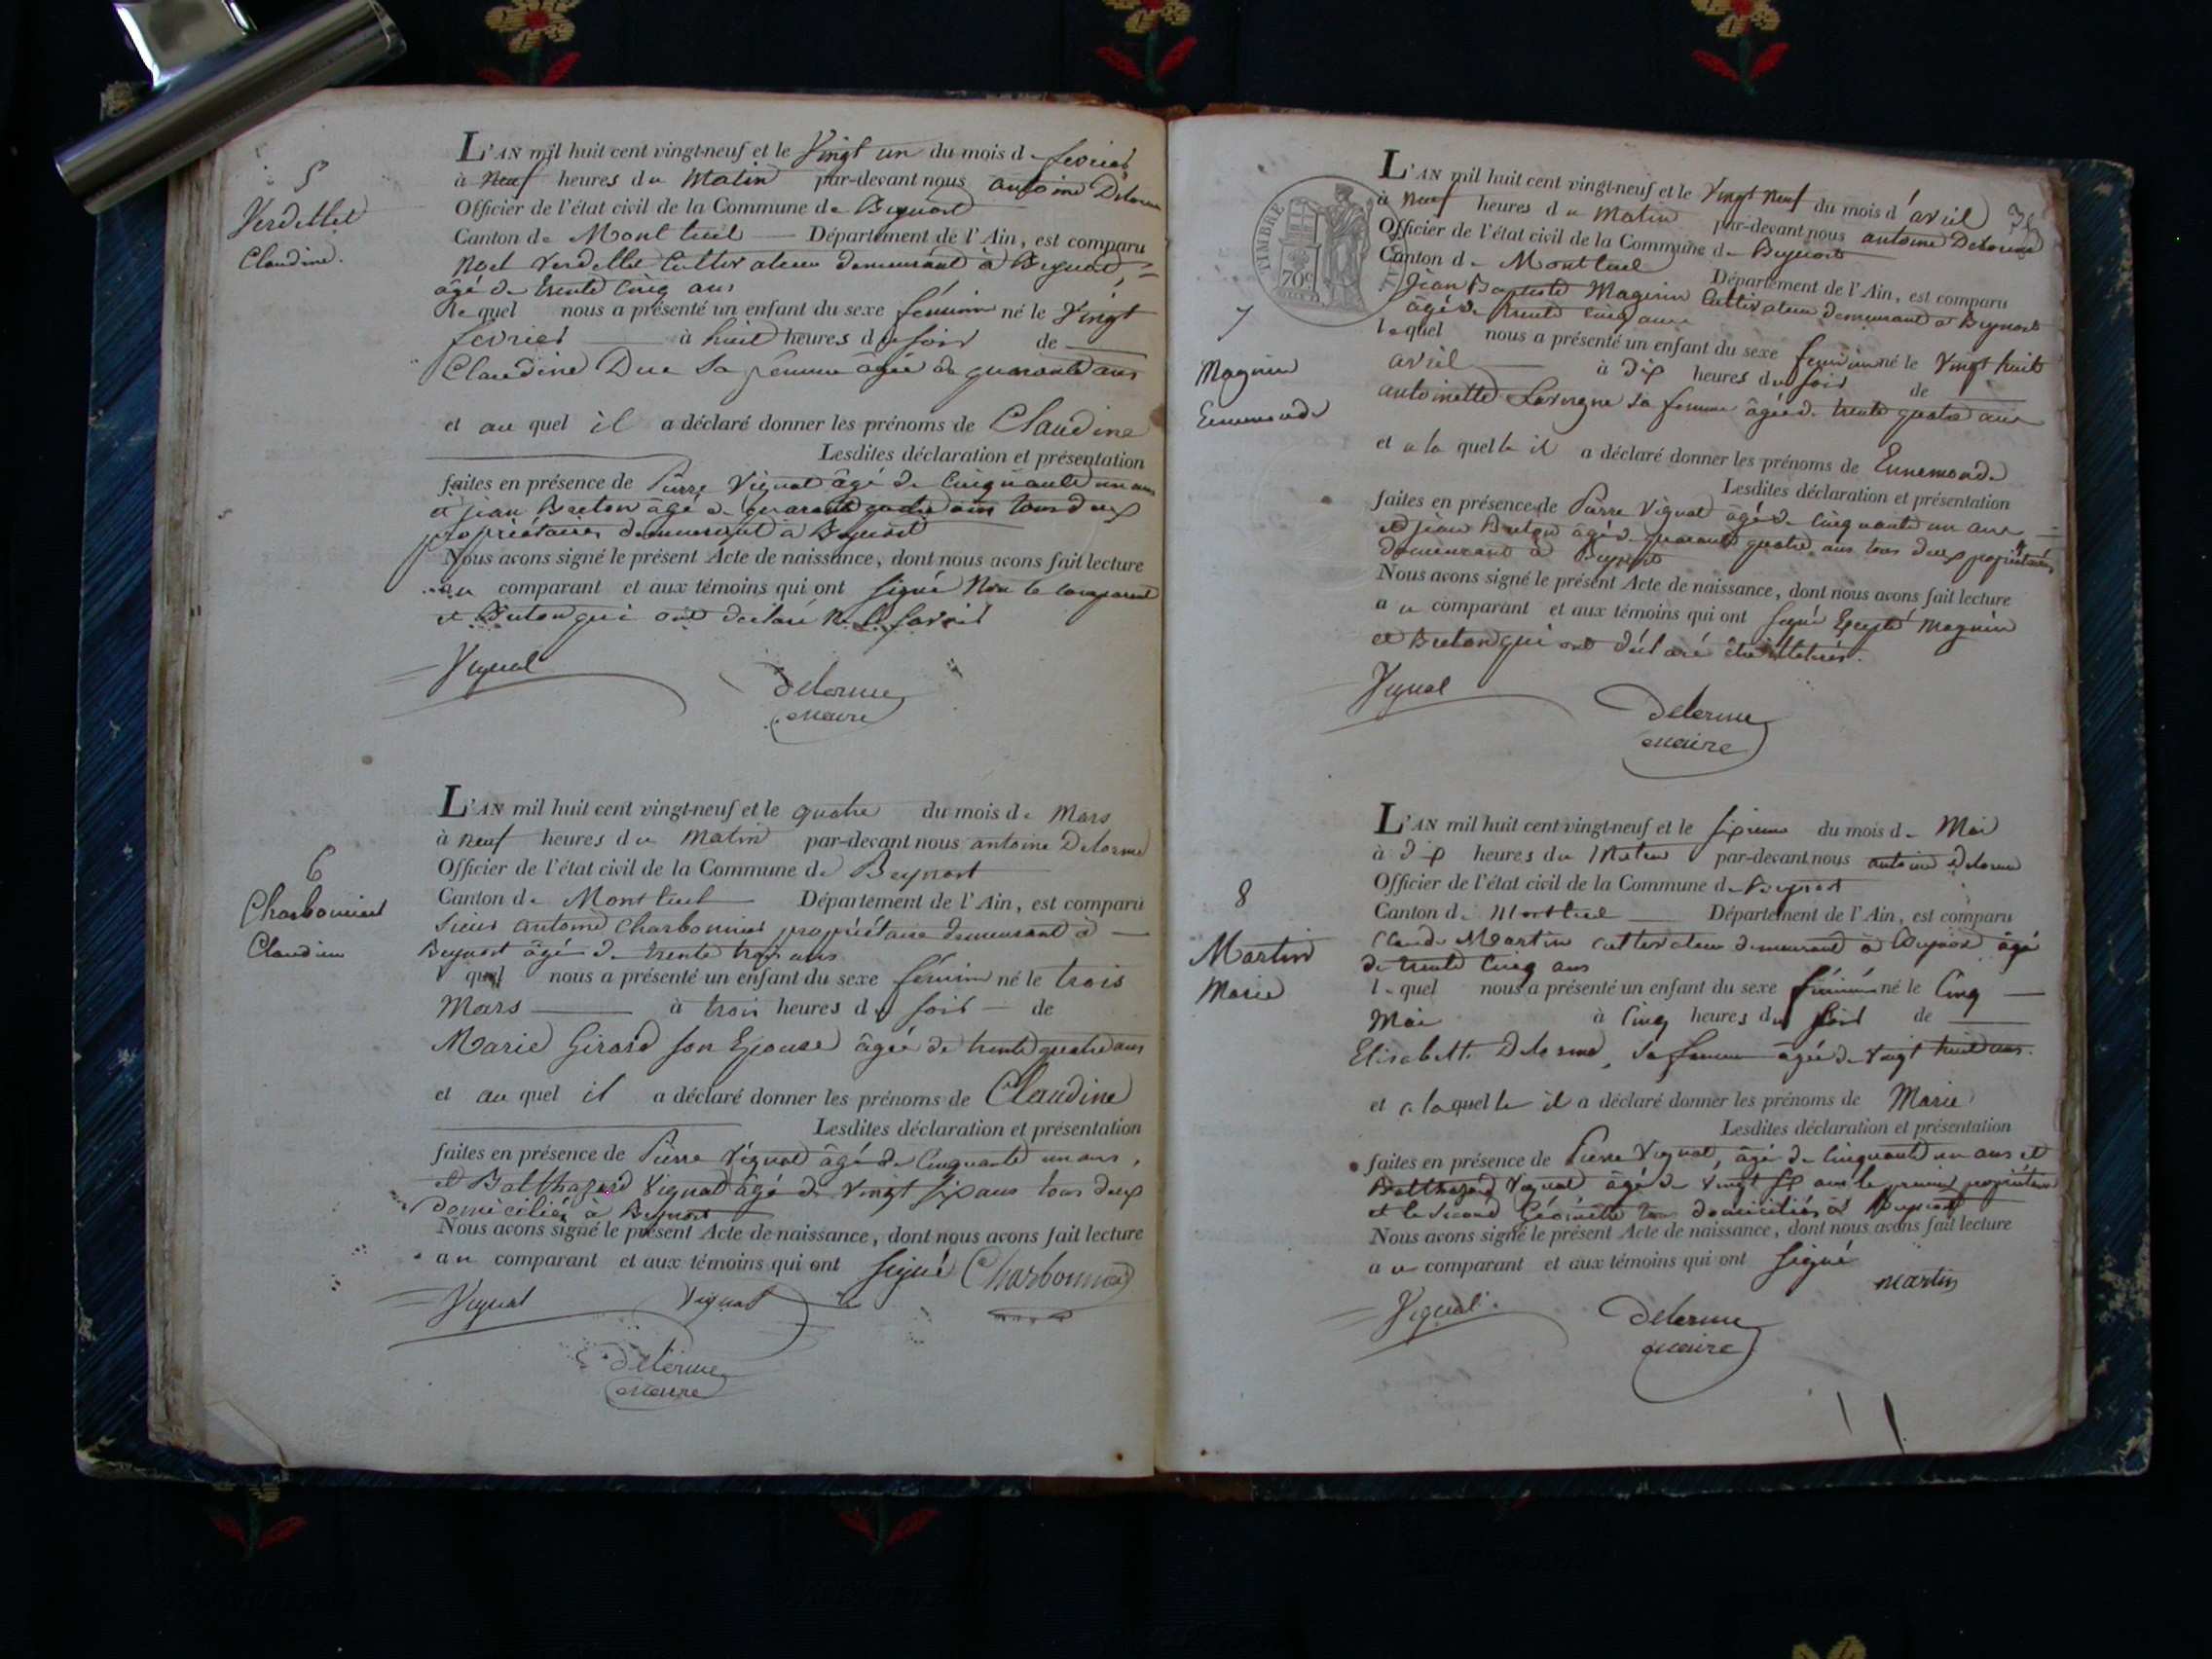 5
Verdellet
Claudine.
L'AN mil huit cent vingt-neuf et le Vingt un du mois de fevrier
à neuf heures du Matin par-devant nous antoine Delorme
Officier de l'état civil de la Commune de Beynost
Canton de Montluel Département de l'Ain, est comparu
Noel Verdellet Cultivateur demeurant à Beynost,
âgé de trente Cinq ans
le quel nous a présenté un enfant du sexe féminin né le Vingt
fevrier à huit heures du soir de
Claudine Duc sa femme âgée de quarante ans
et au quel il a déclaré donner les prénoms de Claudine
Lesdites déclaration et présentation
faites en présence de Pierre Vignat âgé de Cinquante un ans
et jean Breton âgé de quarante quatre ans tous deux
propriétaires demeurant à Beynost
Nous avons signé le présent Acte de naissance, dont nous avons fait lecture
au comparant et aux témoins qui ont signé Non le comparant
et Breton qui ont declaré ne le savoir
Vignat
delorme
maire
6
Charbonnier
Claudine
L'AN mil huit cent vingt-neuf et le quatre du mois de Mars
à neuf heures du Matin par-devant nous antoine Delorme
Officier de l'état civil de la Commune de Beynost
Canton de Montluel Département de l'Ain, est comparu
Sieur antoine Charbonnier propriétaire demeurant à
Beynost âgé de trente trois ans
quel nous a présenté un enfant du sexe féminin né le trois
Mars à trois heures du soir de
Marie Girard son Epouse âgée de trente quatre ans
et au quel il a déclaré donner les prénoms de Claudine
Lesdites déclaration et présentation
faites en présence de Pierre Vignat âgé de Cinquante un ans,
et Balthazard Vignat âgé de Vingt six ans tous deux
domiciliés à Beynost
Nous avons signé le présent Acte de naissance, dont nous avons fait lecture
au comparant et aux témoins qui ont signé Charbonnier
Vignat Vignat
delorme
maire
35
TIMBRE
70c
7
Magnin
Ennemonde
L'AN mil huit cent vingt-neuf et le Vingt neuf du mois d'avril
à neuf heures du Matin par-devant nous antoine Delorme
Officier de l'état civil de la Commune de Beynost
Canton de Montluel Département de l'Ain, est comparu
Jean Baptiste Magnin Cultivateur demeurant à Beynost
âgé de trente cinq ans
lequel nous a présenté un enfant du sexe feminin né le Vingt huit
avril à dix heures du soir de
antoinette Lavergne sa femme âgée de trente quatre ans
et a la quelle il a déclaré donner les prénoms de Ennemonde
Lesdites déclaration et présentation
faites en présence de Pierre Vignat âgé de Cinquante un ans
et jean Breton âgé de quarante quatre ans tous deux propriétaires
demeurant à Beynost
Nous avons signé le présent Acte de naissance, dont nous avons fait lecture
au comparant et aux témoins qui ont signé Excepté Magnin
et Breton qui ont déclaré être illetrés.
Vignat
delorme
maire
8
Martin
Marie
L'AN mil huit cent vingt-neuf et le sixieme du mois de Mai
à dix heures du Matin par-devant nous antoine delorme
Officier de l'état civil de la Commune de Beynost
Canton de Montluel Département de l'Ain, est comparu
Claude Martin cultivateur demeurant à Beynost âgé
de trente Cinq ans
lequel nous a présenté un enfant du sexe féminin né le Cinq
Mai à Cinq heures du soir de
Elisabeth Delorme, sa femme âgée de Vingt huit ans.
et a laquelle il a déclaré donner les prénoms de Marie
Lesdites déclaration et présentation
faites en présence de Pierre Vignat, âgé de Cinquante un ans et
Balthazard Vignat âgé de Vingt six ans le premier propriétaire
et le second Géomètre tous domiciliés à Beynost
Nous avons signé le présent Acte de naissance, dont nous avons fait lecture
au comparant et aux témoins qui ont signé
martin
Vignat
delorme
maire